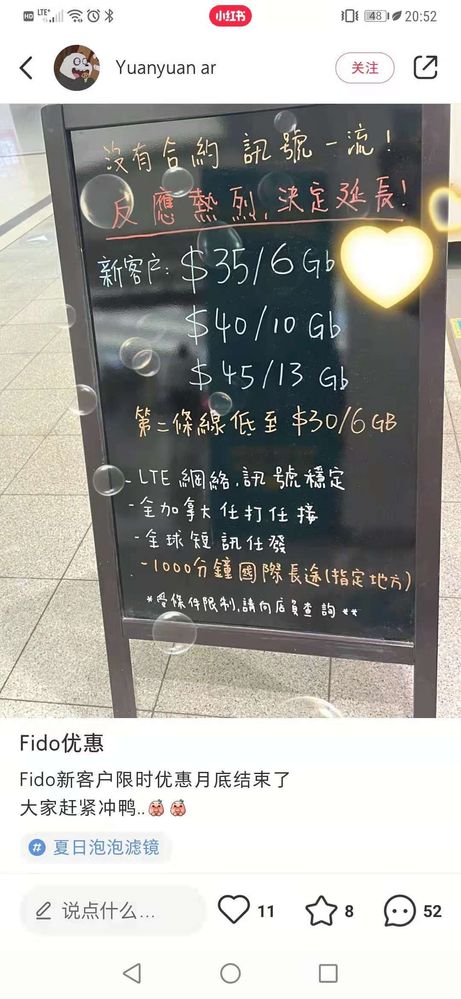 HD LTE+ 小红书 48 20:52
Yuanyuan ar 关注
沒有合約 訊號一流!
反應熱烈,決定延長!
新客户: $35/6 Gb
$40/10 Gb
$45/13 Gb
第二條線低至 $30/6GB
- LTE 網絡,訊號穩定
- 全加拿大任打任接
- 全球短訊任發
- 1000分鐘國際長途(指定地方)
*受條件限制,請向店員查詢**
Fido优惠
Fido新客户限时优惠月底结束了
大家赶紧冲鸭..
# 夏日泡泡滤镜
说点什么... 11 8 52